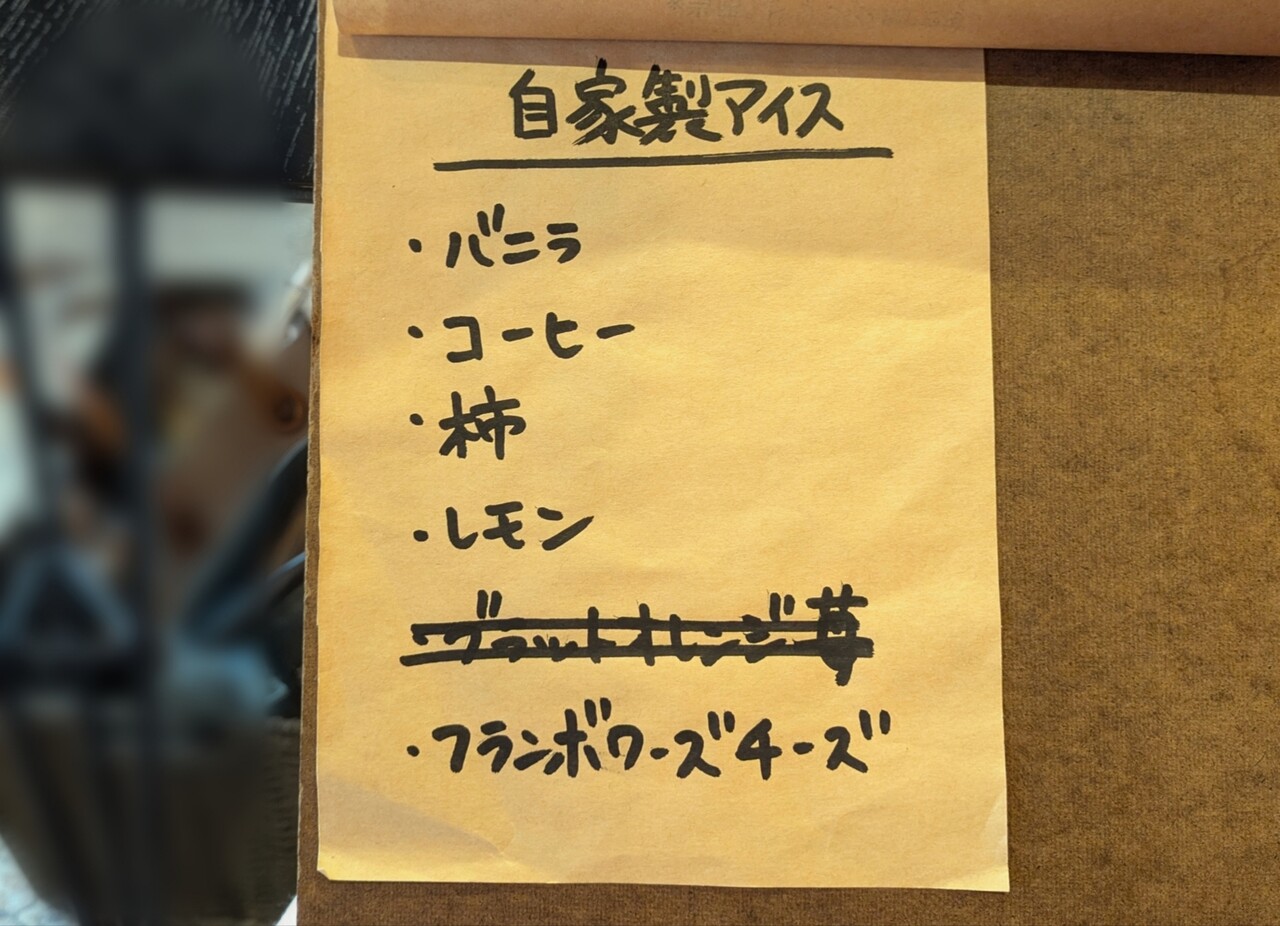 自家製アイス
・バニラ
・コーヒー
・柿
・レモン
・ブラットオレンジ苺
・フランボワーズチーズ